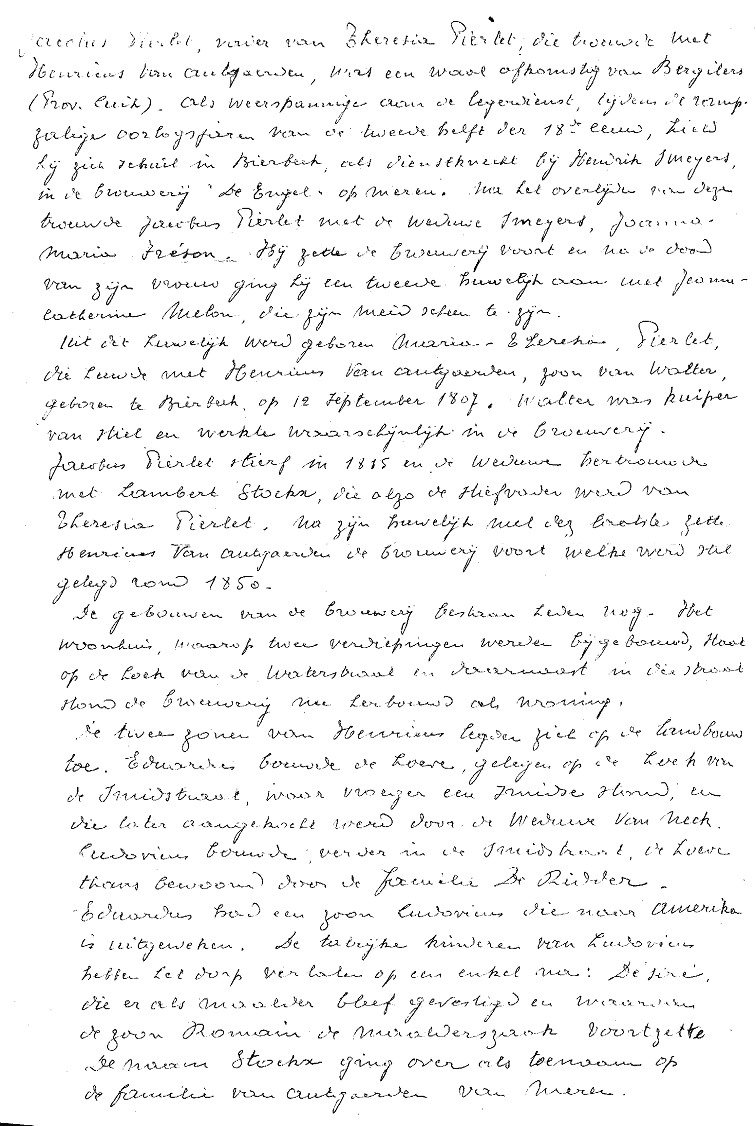 Jacobus Pierlet, vader van Theresia Pierlet, die trouwde met
Henricus Van Autgaerden, was een waal afkomstig van Bergilers
(Prov. Luik). Als weerspannige aan de legerdienst, tijdens de ramp-
zalige oorlogsjaren van de tweede helft der 18de eeuw, hield
hij zich schuil in Bierbeek, als dienstknecht bij Hendrik Smeyers,
in de brouwerij "De Engel" op Meren. Na het overlijden van deze
trouwde Jacobus Pierlet met de weduwe Smeyers, Joanna-
Maria Fréson. Hij zette de brouwerij voort en na de dood
van zijn vrouw ging hij een tweede huwelijk aan met Jeanne-
Catherine Melon, die zijn meid scheen te zijn.
Uit dit huwelijk werd geboren Maria-Theresia, Pierlet,
die huwde met Henricus Van Autgaerden, zoon van Walter,
geboren te Bierbeek, op 12 September 1807. Walter was kuiper
van stiel en werkte waarschijnlijk in de brouwerij.
Jacobus Pierlet stierf in 1815 en de weduwe hertrouwde
met Lambert Stockx, die alzo de stiefvader werd van
Theresia Pierlet. Na zijn huwelijk met deze laatste zette
Henricus Van Autgaerden de brouwerij voort welke werd stil
gelegd rond 1850.
De gebouwen van de brouwerij bestaan heden nog. Het
woonhuis, waarop twee verdiepingen werden bijgebouwd, staat
op de hoek van de Waterstraat en daarnaast in die straat
stond de brouwerij nu herbouwd als woning.
De twee zonen van Henricus legden zich op de landbouw
toe. Eduardus bouwde de hoeve, gelegen op de hoek van
de Smidstraat, waar vroeger een smidse stond, en
die later aangekocht werd door de Weduwe Van Neck.
Ludovicus bouwde, verder in de Smidstraat, de hoeve
thans bewoond door de familie De Ridder.
Eduardus had een zoon Ludovicus die naar Amerika
is uitgeweken. De talrijke kinderen van Ludovicus
hebben het dorp verlaten op een enkel na: Désiré,
die er als maalder bleef gevestigd en waarvan
de zoon Romain de maalderszaak voortzette
De naam Stockx ging over als toenaam op
de familie van Autgaerden van Meren.